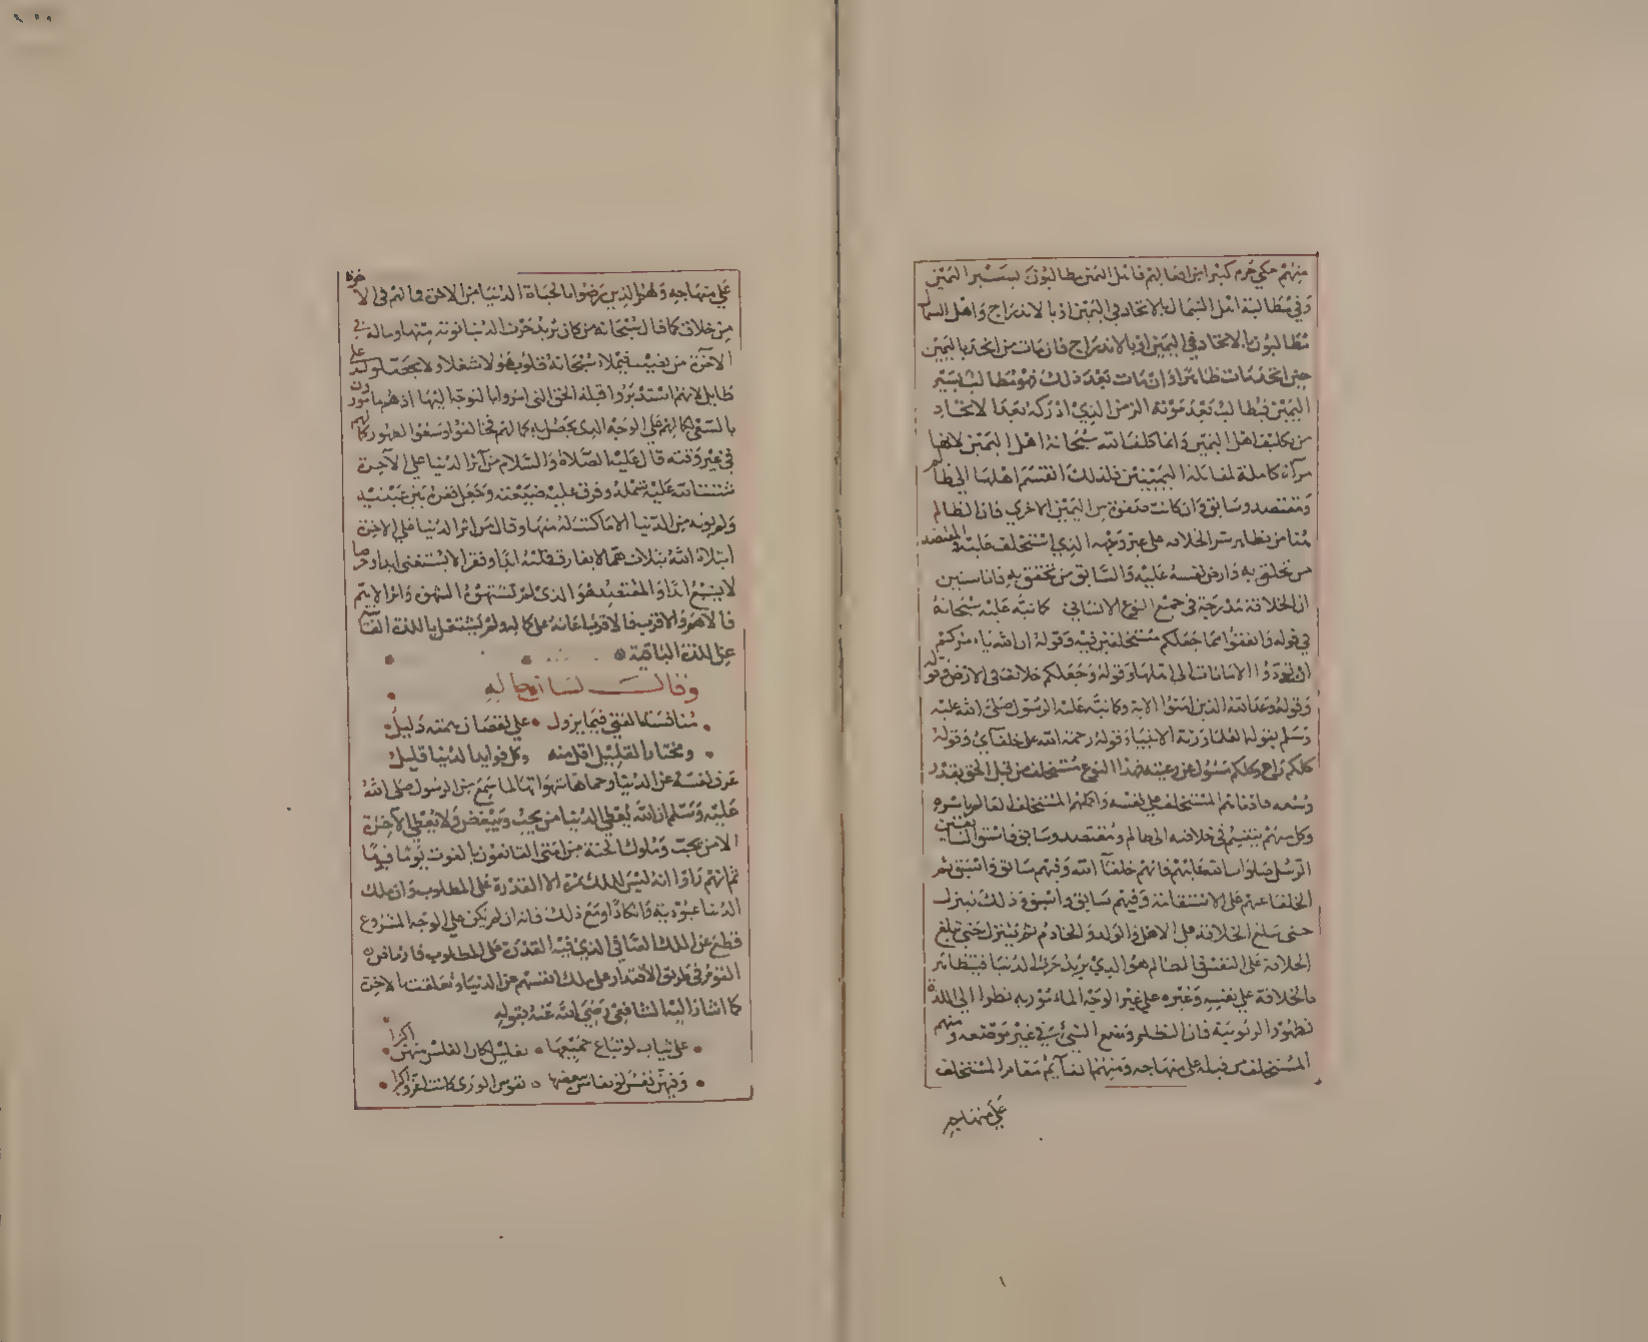 منهم حكي جرم كثيرا من افعالهم فاهل اليمين مطالبون بسير اليمين
وفي مطالبة اهل الشمال بالاتحاد في اليمين اذ بالاندراج واهل الشمال
مطالبون بالاتحاد في اليمين او بالاندراج فان مات من اتحد باليمين
حين اتحد مات طاهرا وان مات بعد ذلك فهو مطالب بسير
اليمين فيطالب بعد موته الزمن الذي ادركه بعد الاتحاد
من تكليف اهل اليمين وانما كلف الله سبحانه اهل اليمين لانها
مرآة كاملة لمقابلة اليمينين فلذلك انقسم اهلها الى ظالم
ومقتصد وسابق وان كانت صفوة من اليمين الاخرى فان الظالم
منا من يظاهر بسر الخلافة على غير وجهه الذي استخلف عليه والمقتصد
من تخلق به وارض نفسه عليه والسابق من تحقق به فانا نستبين
ان الخلافة مدرجة في جميع النوع الانساني كما نبه عليه سبحانه
في قوله وانفقوا مما جعلكم مستخلفين فيه وقوله ان الله يامركم
ان تؤدوا الامانات الى اهلها وقوله وجعلكم خلائف في الارض وقوله
وقوله وعد الله الذين امنوا الاية وكما نبه عليه الرسول صلى الله عليه
وسلم بقوله العلما ورثة الانبياء وقوله رحمة الله على خلفآي وقوله
كلكم راع وكلكم مسؤل عن رعيته فهذا النوع مستخلف من قبل الحق بقدر
وسعه فادناهم المستخلف على نفسه واكملهم المستخلف العالم باسره
وكل منهم ينقسم في خلافته الى ظالم ومقتصد وسابق فاستوا السابقين
الرسل صلوات الله عليهم فانهم خلفآ الله وفيهم سابق واسبق ثم
الخلفا عنهم على الاستقامة وفيهم سابق واسبق وذلك بتنزل
حتى تبلغ الخلافة على الاهل والولد والخادم ثم يتنزل حتى تبلغ
الخلافة على النفس فالظالم هو الذي يريد حرث الدنيا فيتظاهر
بالخلافة على نفسه وغيره على غير الوجه المامور به نظرا الى اللذة
بظهور الربوبية فان الظلم وضع الشي في غير موضعه ومنهم
المستخلف من قبله على منهاجه ومنهم القايم مقام المستخلف
على منهاجه
على منهاجه وهو الذين رضوا بالحياة الدنيا من الاخرة فمالهم في الاخرة
من خلاق كما قال سبحانه من كان يريد حرث الدنيا نؤته منها وماله في
الآخرة من نصيب فيملأ سبحانه قلوب هؤلاء شغلا ولا يحصلوا على
طايل لانهم استدبروا قبلة الحق التي امروا بالتوجه اليها اذ هم مامورون
بالسعي لكمالهم على الوجه الذي يحصل به كمالهم فخالفوا وسعوا لظهور كمالهم
في غير وقته قال عليه الصلاة والسلام من آثر الدنيا على الآخرة
شتت الله عليه شمله وفرق عليه ضيعته وجعل فقره بين عينيه
ولم يؤته من الدنيا الا ما كتب له منها وقال من اثر الدنيا على الاخرة
ابتلاه الله بثلاث هما لا يفارق قلبه ابدا وفقرا لا يستغني ابدا وحرصا
لا يشبع ابدا والمقتصد هو الذي لم تستهوه الشهوة واثر الاهم
فالاهم والاقرب فالاقرب اعانة على كماله ولم يشتغل باللذة الفانية
عن اللذة الباقية
وقالت لسان حاله
منافسة الفتى فيما يزول • على نقصان همته دليل
ومختار القليل اقل منه وكل فوايد الدنيا قليل
عزف نفسه عن الدنيا وحماها شهواتها لما سمع من الرسول صلى الله
عليه وسلم ان الله يعطي الدنيا من يحب ويبغض ولا يعطي الآخرة
الا من يحب وملوك الجنة من امتي القانعون بالقوت يوما فيوما
ثم انهم راوا انه ليس للملك ثمرة الا القدرة على المطلوب وان ملك
الدنيا عبودية وانكاد ومع ذلك فانه ان لم يكن على الوجه المشروع
قطع عن الملك الباقي الذي فيه القدرة على المطلوب فارتاض
القوم في طريق الاقتدار على ملك انفسهم عن الدنيا وتعلقت بالاخرة
كما اشار اليه الشافعي رضي الله عنه بقوله
على ثياب لو تباع جميعها • بفلس لكان الفلس منهن اكثرا
وفيهن نفس لو تقاس ببعضها نفوس الورى كانت اعز واكبرا